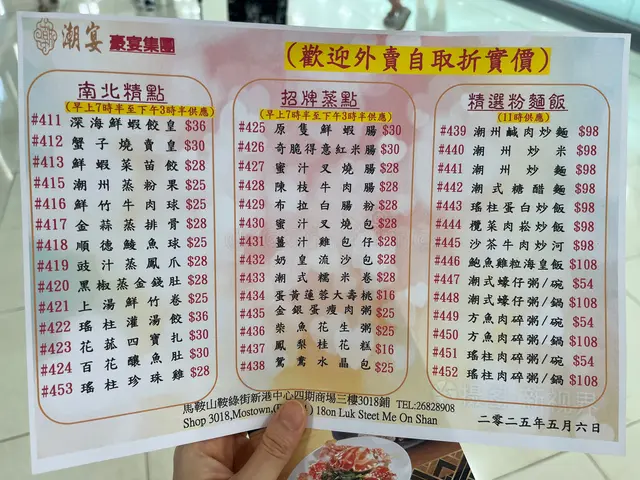 潮宴 豪宴集團
(歡迎外賣自取折實價)
南北精點
(早上7時半至下午3時半供應)
#411 深海鮮蝦餃皇 $36
#412 蟹子燒賣皇 $30
#413 鮮蝦菜苗餃 $28
#415 潮州蒸粉果 $25
#416 鮮竹牛肉球 $25
#417 金蒜蒸排骨 $28
#418 順德鯪魚球 $25
#419 豉汁蒸鳳爪 $28
#420 黑椒蒸金錢肚 $28
#421 上湯鮮竹卷 $25
#422 瑤柱灌湯餃 $36
#423 花菇四寶扎 $30
#424 百花釀魚肚 $30
#453 瑤柱珍珠雞 $28
招牌蒸點
(早上7時半至下午3時半供應)
#425 原隻鮮蝦腸 $30
#426 奇脆得意紅米腸 $30
#427 蜜汁叉燒腸 $28
#428 陳枝牛肉腸 $28
#429 布拉白腸粉 $28
#430 蜜汁叉燒包 $28
#431 薑汁雞包仔 $28
#432 奶皇流沙包 $28
#433 潮式糯米卷 $28
#434 蛋黃蓮蓉大壽桃 $16
#435 金銀蛋瘦肉粥 $25
#436 柴魚花生粥 $25
#437 鳳梨桂花糕 $16
#438 鴛鴦水晶包 $25
精選粉麵飯
(11時供應)
#439 潮州鹹肉炒麵 $98
#440 潮州炒米 $98
#441 潮州炒麵 $98
#442 潮式糖醋麵 $98
#443 瑤柱蛋白炒飯 $98
#444 欖菜肉崧炒飯 $98
#445 沙茶牛肉炒河 $98
#446 鮑魚雞粒海皇飯 $98
#447 潮式蠔仔粥/碗 $54
#448 潮式蠔仔粥/鍋 $108
#449 方魚肉碎粥/碗 $54
#450 方魚肉碎粥/鍋 $108
#451 瑤柱肉碎粥/碗 $54
#452 瑤柱肉碎粥/鍋 $108
馬鞍山鞍綠街新港中心四期商場三樓3018鋪 TEL:26828908
Shop 3018,Mostown, 18on Luk Steet Me On Shan
二零二五年五月六日